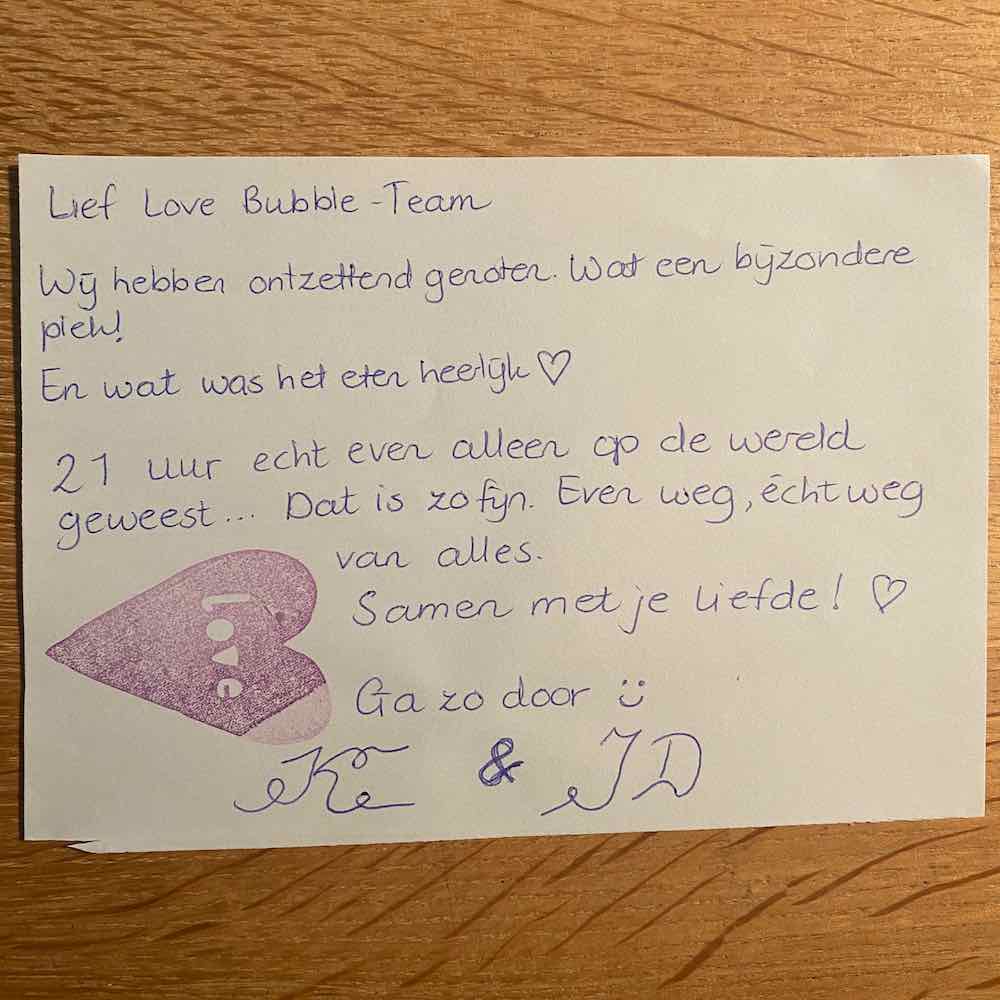 Lief Love Bubble-Team
Wij hebben ontzettend genoten. Wat een bijzondere
plek!
En wat was het eten heerlijk ♡
21 uur echt even alleen op de wereld
geweest... Dat is zo fijn. Even weg, écht weg
van alles.
Samen met je liefde! ♡
love
Ga zo door ü
& JD